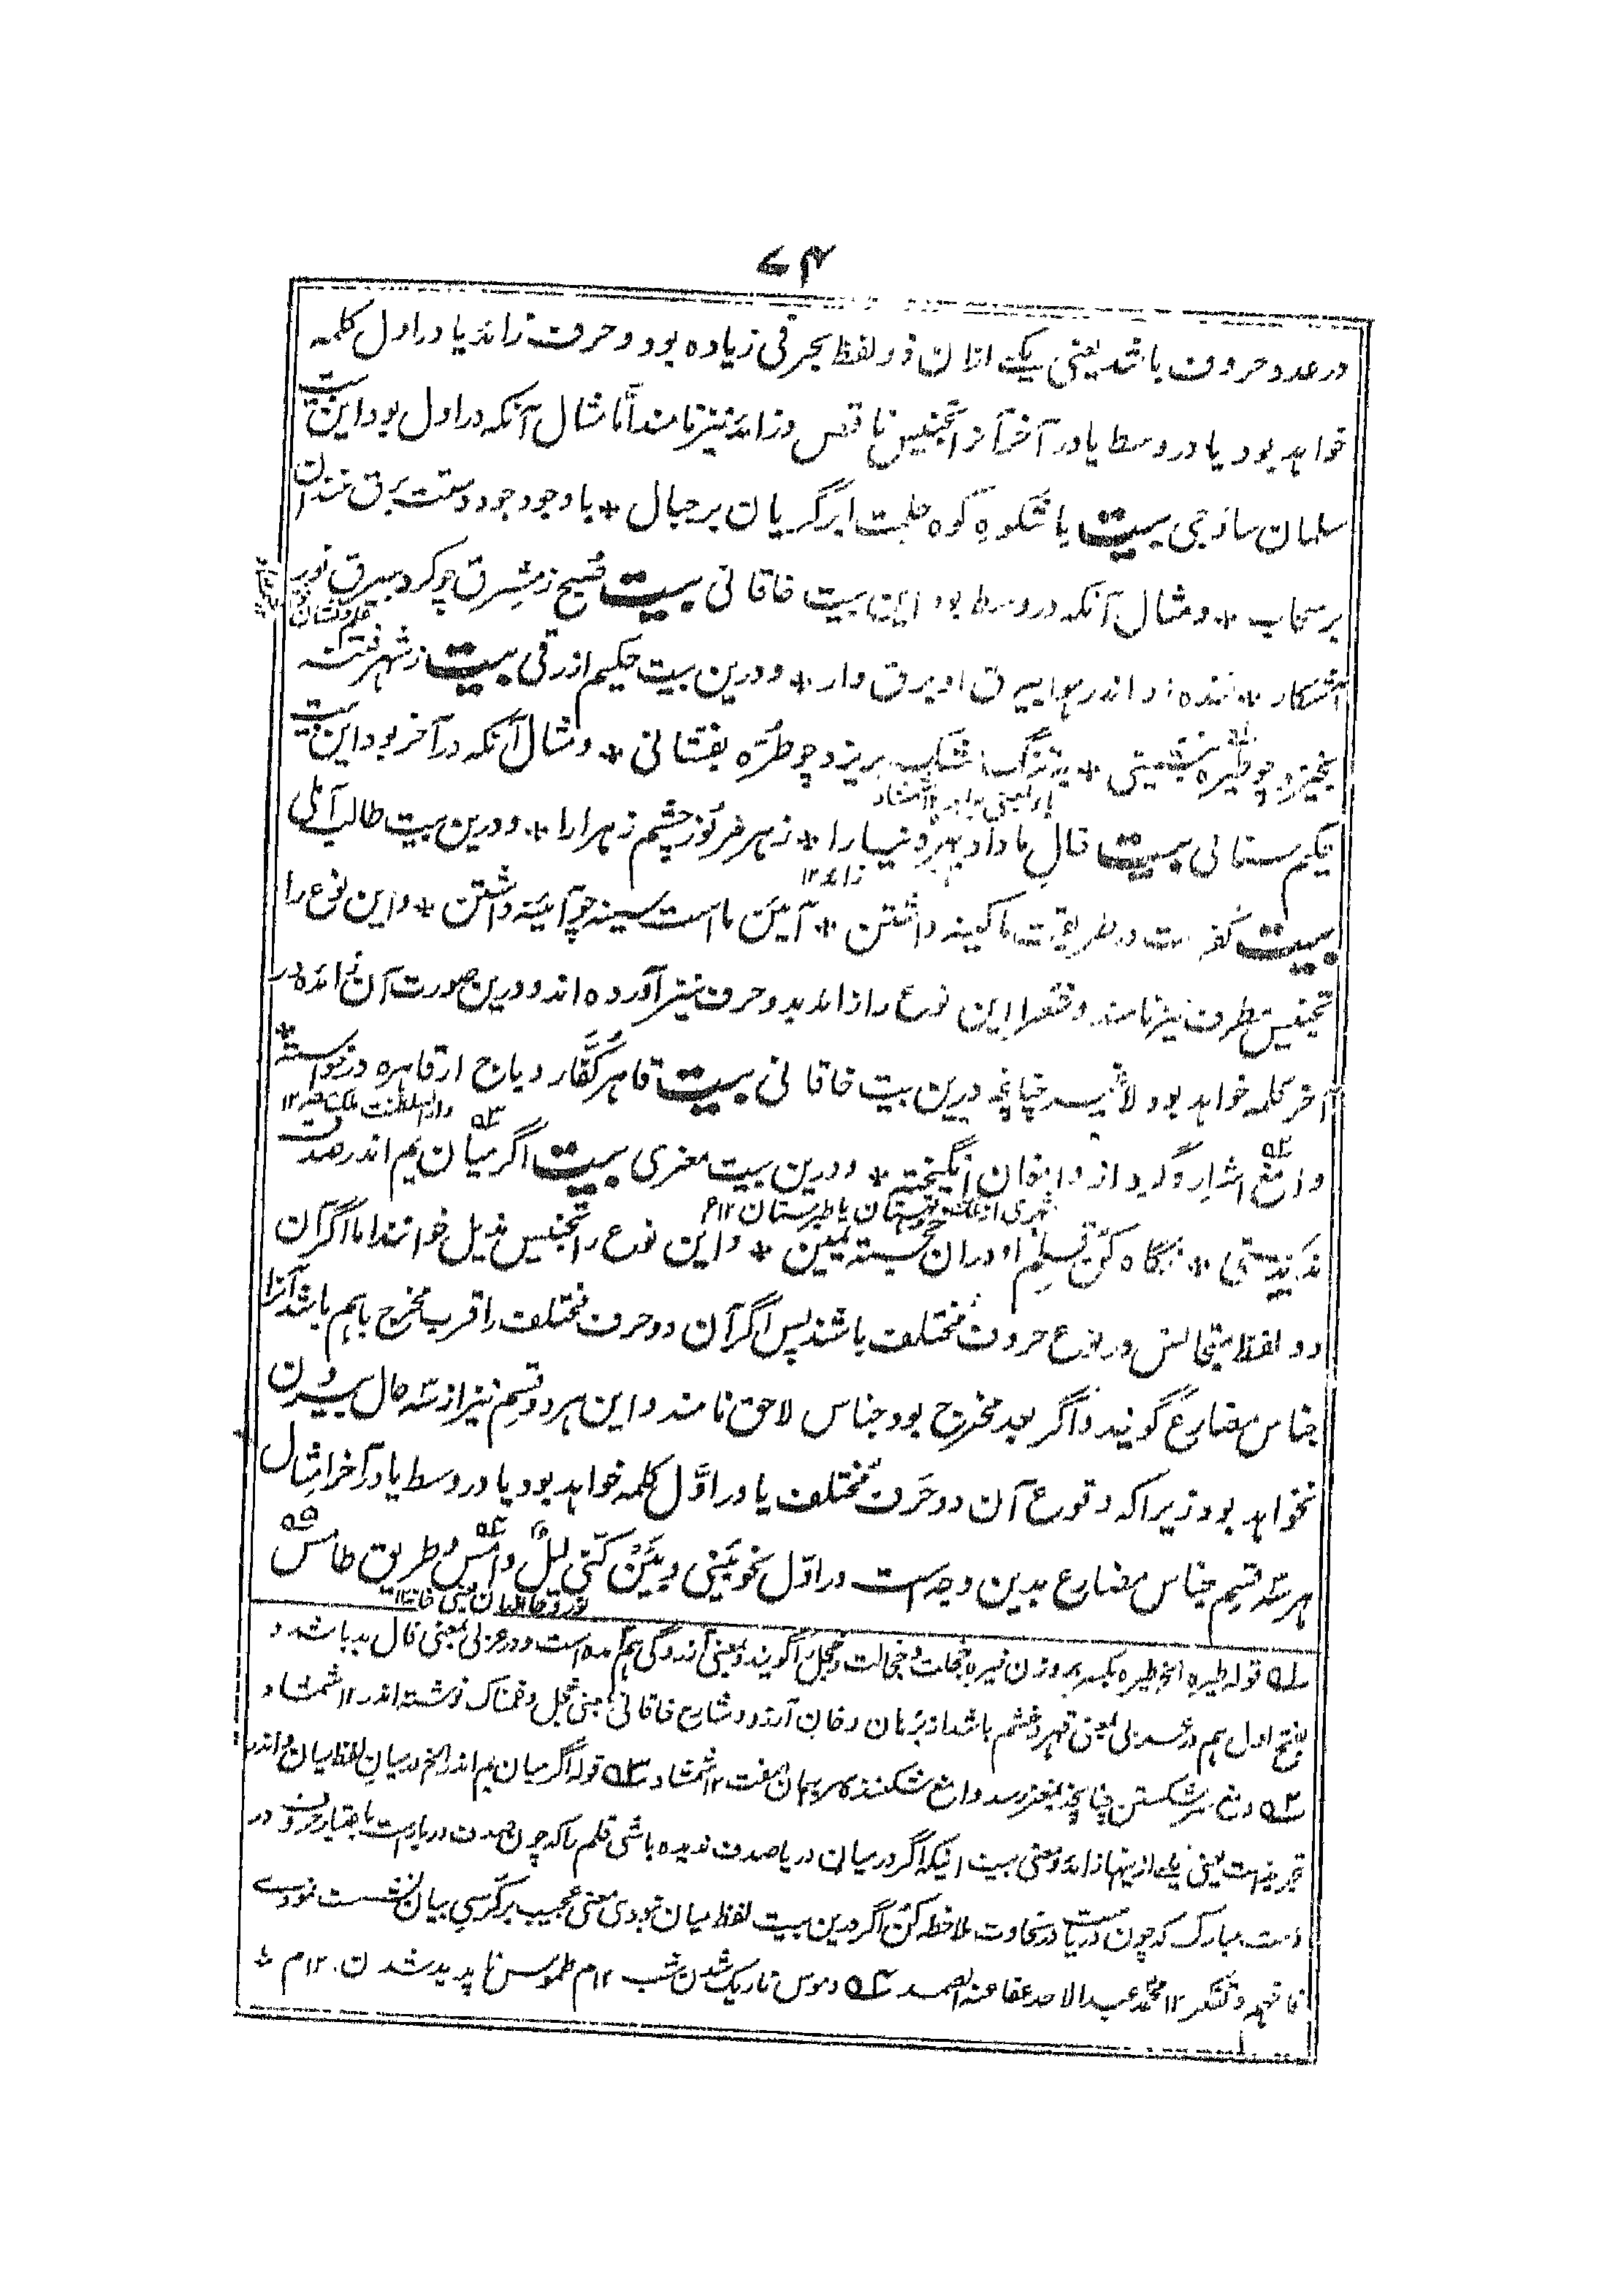 ۷۴
در عدد حروف باشد یعنی یکے ازان دو لفظ بحرفی زیاده بود و حرف زائد یا در اول کلمه
خواهد بود یا در وسط یا در آخر آنرا تجنیس ناقص و زائد نیز نامند اما مثال آنکه در اول بود این بیت
سلمان ساوجی بیت با شکوهِ کوه حلمت ابر گریان بر جبال * با وجود جود دستت برق خندان
بر سحاب * و مثال آنکه در وسط بود این بیت خاقانی بیت صبح ز مشرق چو کرد بیرق نور
آشکار * خنده زد اندر هوا بیرق او برق وار * و درین بیت حکیم ازرقی بیت ز شهر فتنه
بخیزد چو طیره بنشینی * ز تنگ مشک بریزد چو طره بفشانی * و مثال آنکه در آخر بود این بیت
حکیم سنائی بیت خالِ ما داد بهر دنیا را * زهر مر نور چشم زهرا را * و درین بیت طالب آملی
زائد ۱۲
بیت کفرست در طریقت ما کینه داشتن * آئین ماست سینه چو آئینه داشتن * و این نوع را
تجنیس مطرف نیز نامند و فقرا این نوع را زائد بدو حرف نیز آورده اند و درین صورت آن زائد در
آخر کلمه خواهد بود لاغیر چنانچه درین بیت خاقانی بیت قاهر کُفّار و باج از قاهره درخواسته *
دار السلطنت ملک مصر ۱۲
دامغ اشرار و گرد از دامغان انگیخته * و درین بیت معزی بیت اگر میان یم اندر صدف
شهری از ملک قهستان یا طبرستان ۱۲
ندیدستی * نگاه کن قلم او دران خجسته یمین * و این نوع را تجنیس مذیل خوانند اما اگر آن
دو لفظ متجانس در نوع حروف مختلف باشند پس اگر آن دو حرف مختلف را قرب مخرج باهم باشد آنرا
جناس مضارع گویند و اگر بعد مخرج بود جناس لاحق نامند و این هر دو قسم نیز از سه حال بیرون
نخواهد بود زیرا که وقوع آن دو حرف مختلف یا در اوّل کلمه خواهد بود یا در وسط یا در آخر مثال
هر سه قسم جناس مضارع بدین وجه است در اوّل نحو بینی و بین کنّی لیلٌ دامسٌ و طریق طامسٌ
۱ قوله طیره الخ طیره بکسر بر وزن خیره خجلت و خجالت و خجل را گویند و بمعنی آزردگی هم آمده است و در عربی بمعنی فال بد باشد و
بفتح اول هم در عربی بمعنی قهر و خشم باشد از برهان و خان آرزو و شارح خاقانی بمعنی خجل و غمناک نوشته اند ۱۲ شمشاد
۲ دمغ سر شکستن چنانچه بمغز رسد دامغ شکننده سر بهمان صفت ۱۲ شمشاد ۳ قوله اگر میان یم اندر الخ در میان لفظ میان و اندر
تجرید است یعنی یکے ازینها زائد و معنی بیت اینکه اگر درمیان دریا صدف ندیده باشی قلم را که چون صدف دریاست باعتبار حروف در
دست مبارک که چون دریاست در سخاوت ملاحظه کن اگر درین بیت لفظ میان نبودی معنی عجیب بر کرسی بیان نشست نمودے
فافهم و تفکر ۱۲ محمد عبد الاحد عفا عنه الصمد ۴ دموس تاریک شدن شب ۱۲ م طموس ناپدید شدن ۱۲ م